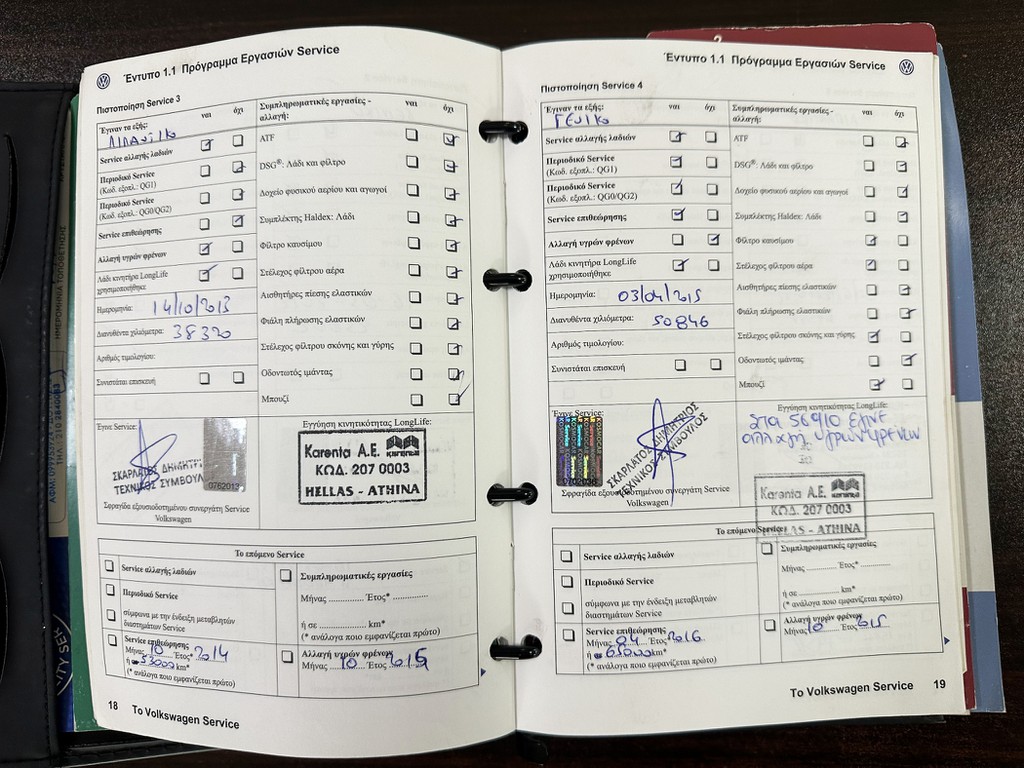 Έντυπο 1.1 Πρόγραμμα Εργασιών Service
Πιστοποίηση Service 3
Έγιναν τα εξής:
ναι
όχι
Συμπληρωματικές εργασίες -
αλλαγή:
ναι
όχι
Service αλλαγής λαδιών
Περιοδικό Service
(Κωδ. εξοπλ.: QG1)
Περιοδικό Service
(Κωδ. εξοπλ.: QG0/QG2)
Service επιθεώρησης
Αλλαγή υγρών φρένων
Λάδι κινητήρα LongLife
χρησιμοποιήθηκε
Ημερομηνία: 14/10/2013
Διανυθέντα χιλιόμετρα: 38320
Αριθμός τιμολογίου:
Συνιστάται επισκευή
ATF
DSG®: Λάδι και φίλτρο
Δοχείο φυσικού αερίου και αγωγοί
Συμπλέκτης Haldex: Λάδι
Φίλτρο καυσίμου
Στέλεχος φίλτρου αέρα
Αισθητήρες πίεσης ελαστικών
Φιάλη πλήρωσης ελαστικών
Στέλεχος φίλτρου σκόνης και γύρης
Οδοντωτός ιμάντας
Μπουζί
Έγινε Service:
ΣΚΑΡΛΑΤΟΣ ΔΗΜΗΤΡ
ΤΕΧΝΙΚΟΣ ΣΥΜΒΟΥΛ
0762013
Σφραγίδα εξουσιοδοτημένου συνεργάτη Service
Volkswagen
Εγγύηση κινητικότητας LongLife:
Karenta A.E. karenta
ΚΩΔ. 207 0003
HELLAS - ATHINA
Το επόμενο Service
Service αλλαγής λαδιών
Περιοδικό Service
σύμφωνα με την ένδειξη μεταβλητών
διαστημάτων Service
Service επιθεώρησης
Μήνας 10 Έτος* 2014
ή σε 53000 km*
(* ανάλογα ποιο εμφανίζεται πρώτο)
Συμπληρωματικές εργασίες
Μήνας .............. Έτος* ..............
ή σε .................... km*
(* ανάλογα ποιο εμφανίζεται πρώτο)
Αλλαγή υγρών φρένων
Μήνας 10 Έτος 2015
18 Το Volkswagen Service
Έντυπο 1.1 Πρόγραμμα Εργασιών Service
Πιστοποίηση Service 4
Έγιναν τα εξής:
ΓΕΝΙΚΟ
ναι
όχι
Συμπληρωματικές εργασίες -
αλλαγή:
ναι
όχι
Service αλλαγής λαδιών
Περιοδικό Service
(Κωδ. εξοπλ.: QG1)
Περιοδικό Service
(Κωδ. εξοπλ.: QG0/QG2)
Service επιθεώρησης
Αλλαγή υγρών φρένων
Λάδι κινητήρα LongLife
χρησιμοποιήθηκε
Ημερομηνία: 03/04/2015
Διανυθέντα χιλιόμετρα: 50846
Αριθμός τιμολογίου:
Συνιστάται επισκευή
ATF
DSG®: Λάδι και φίλτρο
Δοχείο φυσικού αερίου και αγωγοί
Συμπλέκτης Haldex: Λάδι
Φίλτρο καυσίμου
Στέλεχος φίλτρου αέρα
Αισθητήρες πίεσης ελαστικών
Φιάλη πλήρωσης ελαστικών
Στέλεχος φίλτρου σκόνης και γύρης
Οδοντωτός ιμάντας
Μπουζί
Έγινε Service:
ΣΚΑΡΛΑΤΟΣ ΔΗΜΗΤΡΙΟΣ
ΤΕΧΝΙΚΟΣ ΣΥΜΒΟΥΛΟΣ
Σφραγίδα εξουσιοδοτημένου συνεργάτη Service
Volkswagen
Εγγύηση κινητικότητας LongLife:
στα 56910 έγινε
αλλαγή υγρών φρένων
Karenta A.E. karenta
ΚΩΔ. 207 0003
HELLAS - ATHINA
Το επόμενο Service
Service αλλαγής λαδιών
Περιοδικό Service
σύμφωνα με την ένδειξη μεταβλητών
διαστημάτων Service
Service επιθεώρησης
Μήνας 04 Έτος* 2016
ή σε 65000 km*
(* ανάλογα ποιο εμφανίζεται πρώτο)
Συμπληρωματικές εργασίες
Μήνας .............. Έτος* ..............
ή σε .................... km*
(* ανάλογα ποιο εμφανίζεται πρώτο)
Αλλαγή υγρών φρένων
Μήνας 10 Έτος 2015
Το Volkswagen Service 19